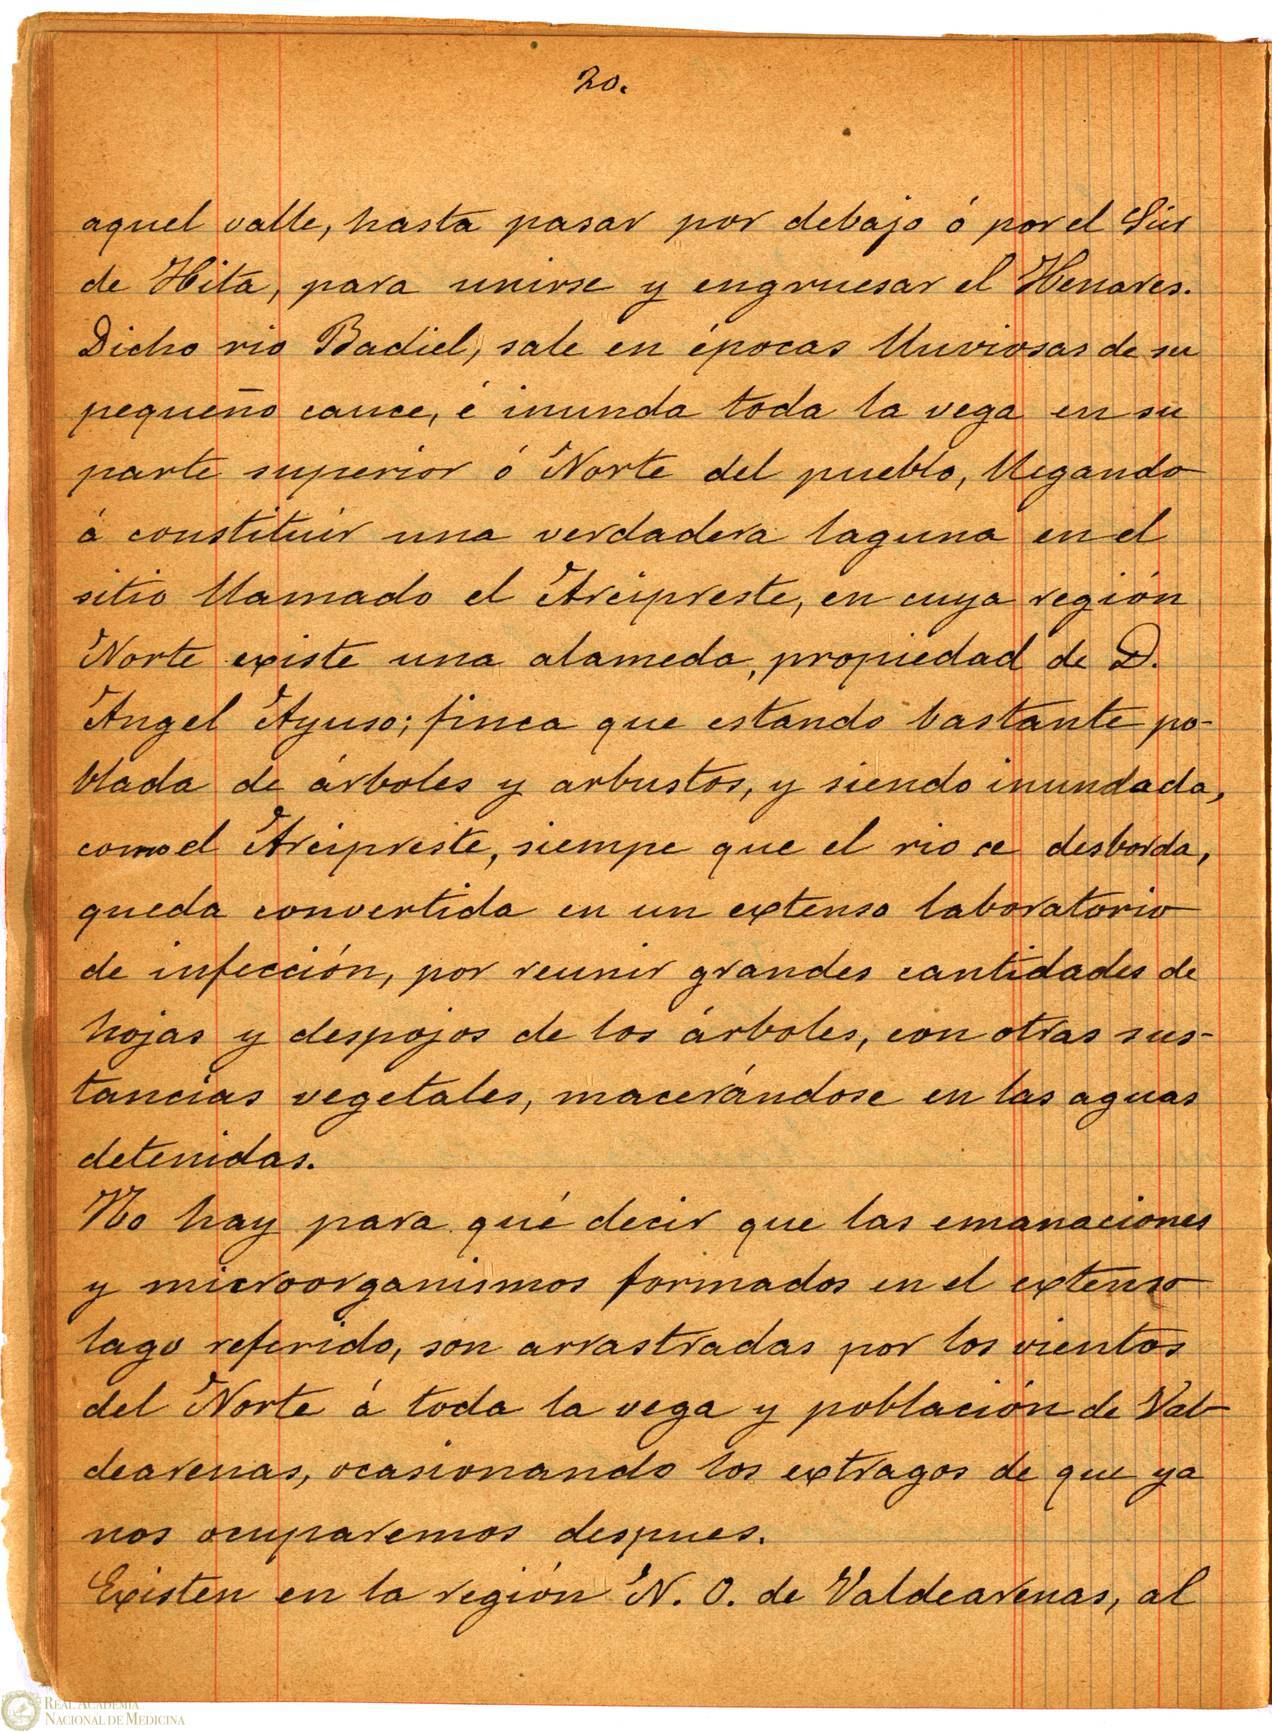 20.
aquel valle, hasta pasar por debajo ó por el Sur
de Hita, para unirse y engruesar el Henares.
Dicho rio Badiel, sale en épocas lluviosas de su
pequeño cauce, é inunda toda la vega en su
parte superior ó Norte del pueblo, llegando
á constituir una verdadera laguna en el
sitio llamado el Arcipreste, en cuya región
Norte existe una alameda, propiedad de D.
Angel Ayuso; finca que estando bastante po-
blada de árboles y arbustos, y siendo inundada,
como el Arcipreste, siempe que el rio se desborda,
queda convertida en un extenso laboratorio
de infección, por reunir grandes cantidades de
hojas y despojos de los árboles, con otras sus-
tancias vegetales, macerándose en las aguas
detenidas.
No hay para qué decir que las emanaciones
y microorganismos formados en el extenso
lago referido, son arrastradas por los vientos
del Norte á toda la vega y población de Val-
dearenas, ocasionando los extragos de que ya
nos ocuparemos despues.
Existen en la región N. O. de Valdearenas, al
REAL ACADEMIA
NACIONAL DE MEDICINA